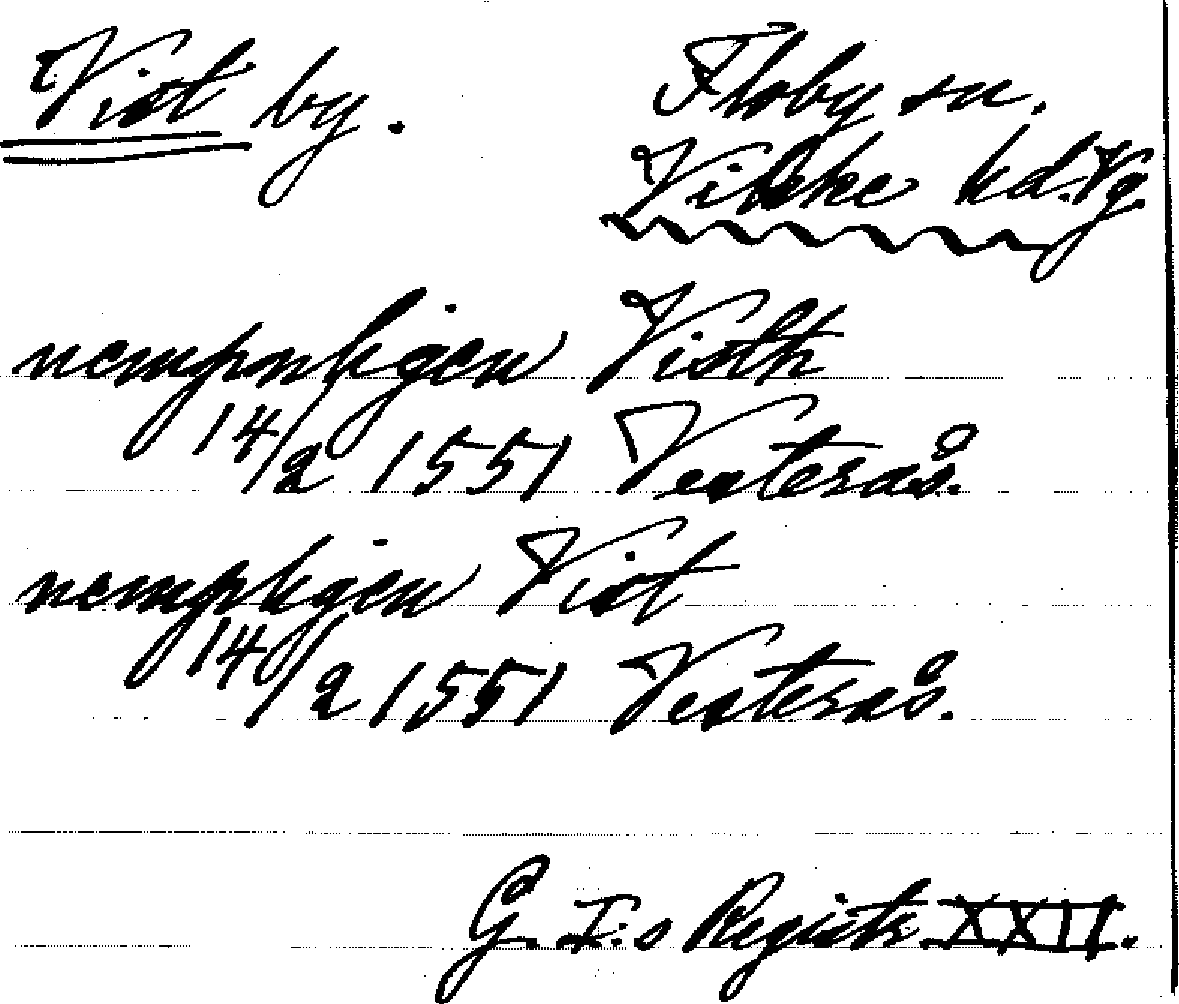 Vist by. Floby sn.
Vilske hd. Vg.
nempnligen Visth
14/2 1551 Vesterås.
nempligen Vist
14/2 1551 Vesterås.
G. I:s Registr. XXII.